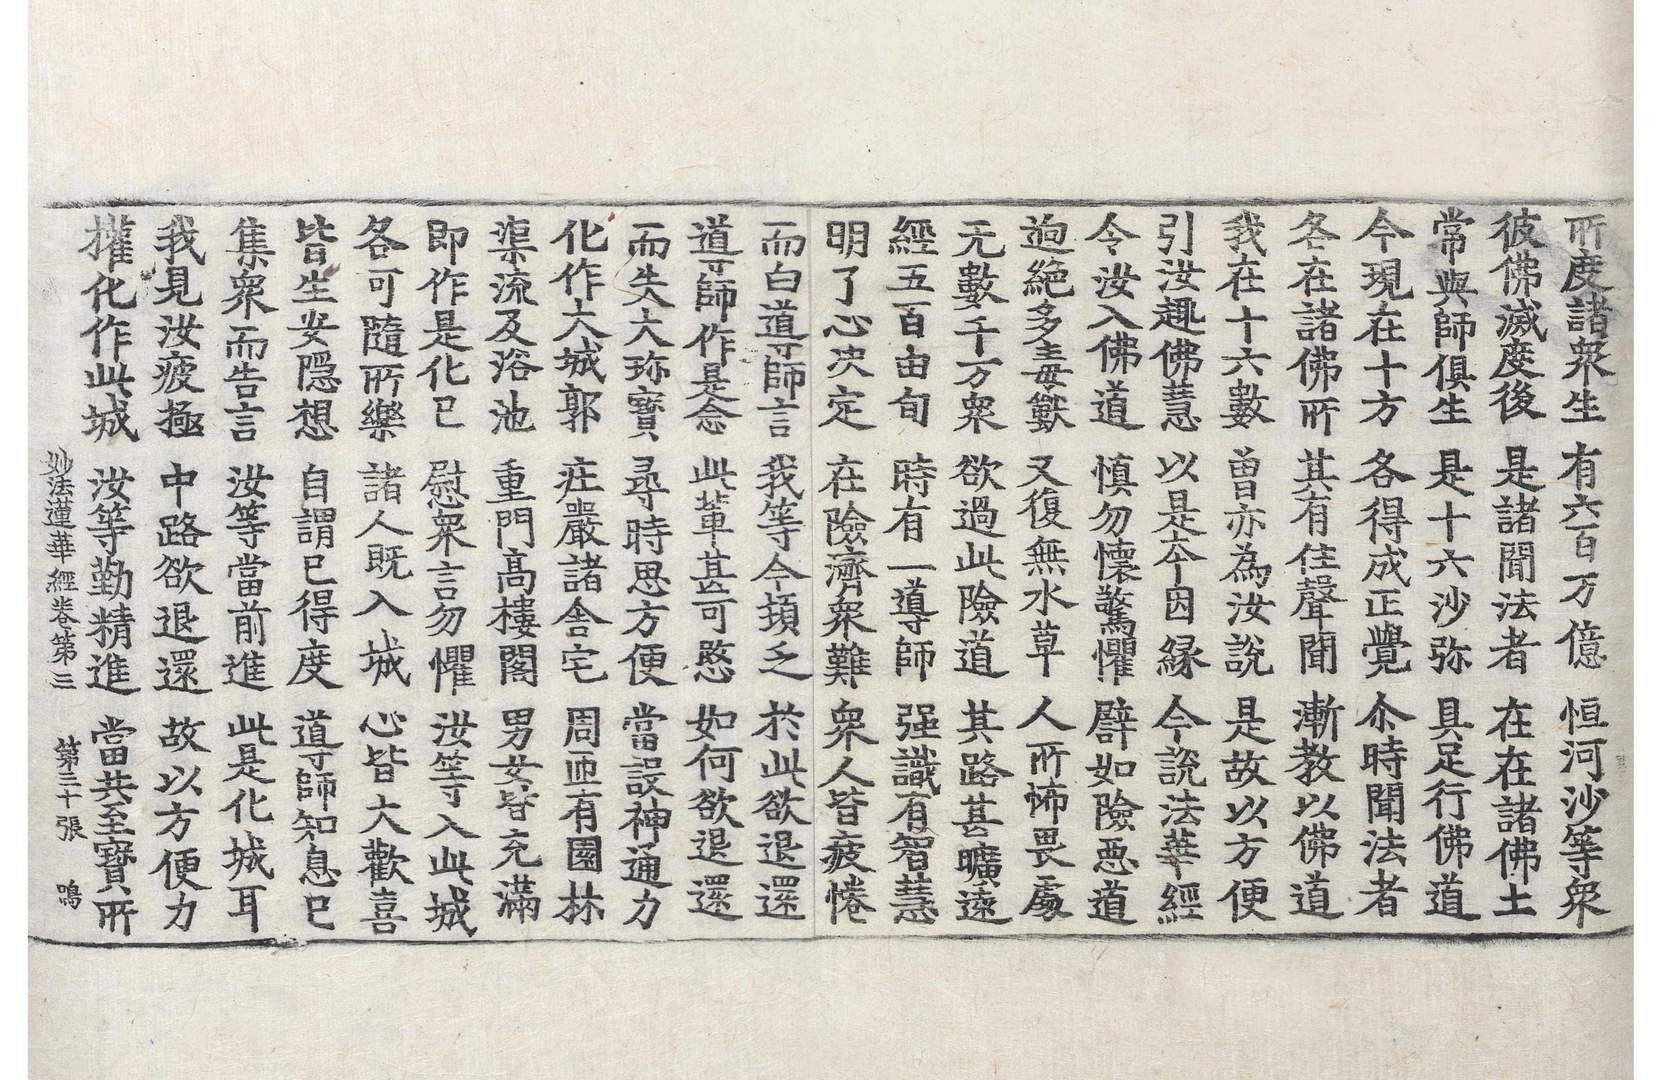 所度諸衆生 有六百万億 恒河沙等衆
彼佛滅度後 是諸聞法者 在在諸佛土
常與師俱生 是十六沙弥 具足行佛道
今現在十方 各得成正覺 尒時聞法者
各在諸佛所 其有住聲聞 漸教以佛道
我在十六數 曾亦為汝說 是故以方便
引汝趣佛慧 以是本因緣 今說法華經
令汝入佛道 慎勿懷驚懼 譬如險惡道
逈絕多毒獸 又復無水草 人所怖畏處
无數千万衆 欲過此險道 其路甚曠遠
經五百由旬 時有一導師 强識有智慧
明了心决定 在險濟衆難 衆人皆疲惓
而白導師言 我等今頓乏 於此欲退還
導師作是念 此輩甚可愍 如何欲退還
而失大珎寶 尋時思方便 當設神通力
化作大城郭 庄嚴諸舎宅 周迊有園林
渠流及浴池 重門髙樓閣 男女皆充滿
即作是化已 慰衆言勿懼 汝等入此城
各可隨所樂 諸人既入城 心皆大歡喜
皆生安隱想 自謂已得度 導師知息已
集衆而告言 汝等當前進 此是化城耳
我見汝疲極 中路欲退還 故以方便力
權化作此城 汝等勤精進 當共至寶所
妙法蓮華經卷第三 第三十張 鳴